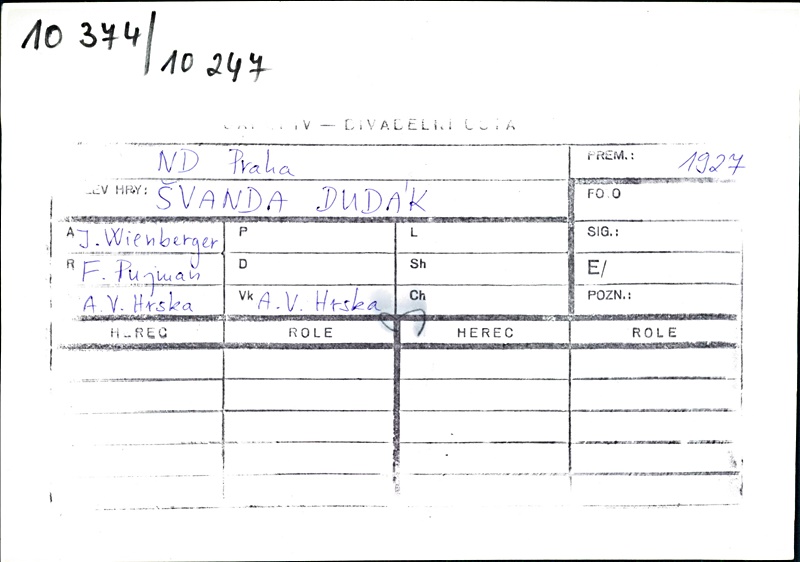 10 374/
10 247
DIVADELNÍ
ND Praha PREM.: 1927
EV HRY: ŠVANDA DUDÁK FO O
A J. Wienberger P L SIG.:
R F. Pujman D Sh E/
A. V. Hrska Vk A. V. Hrska Ch POZN.:
H REC ROLE HEREC ROLE